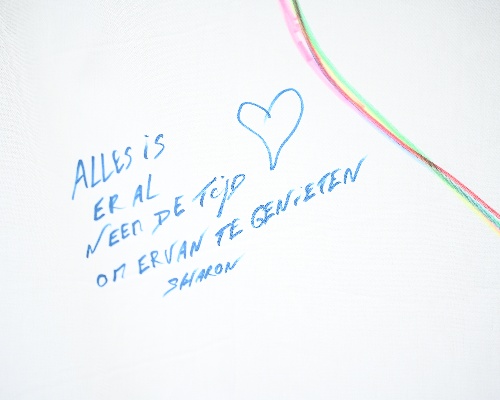 ALLES iS
ER AL
NEEM DE TijD
OM ERVAN TE GENiETEN
SHARON